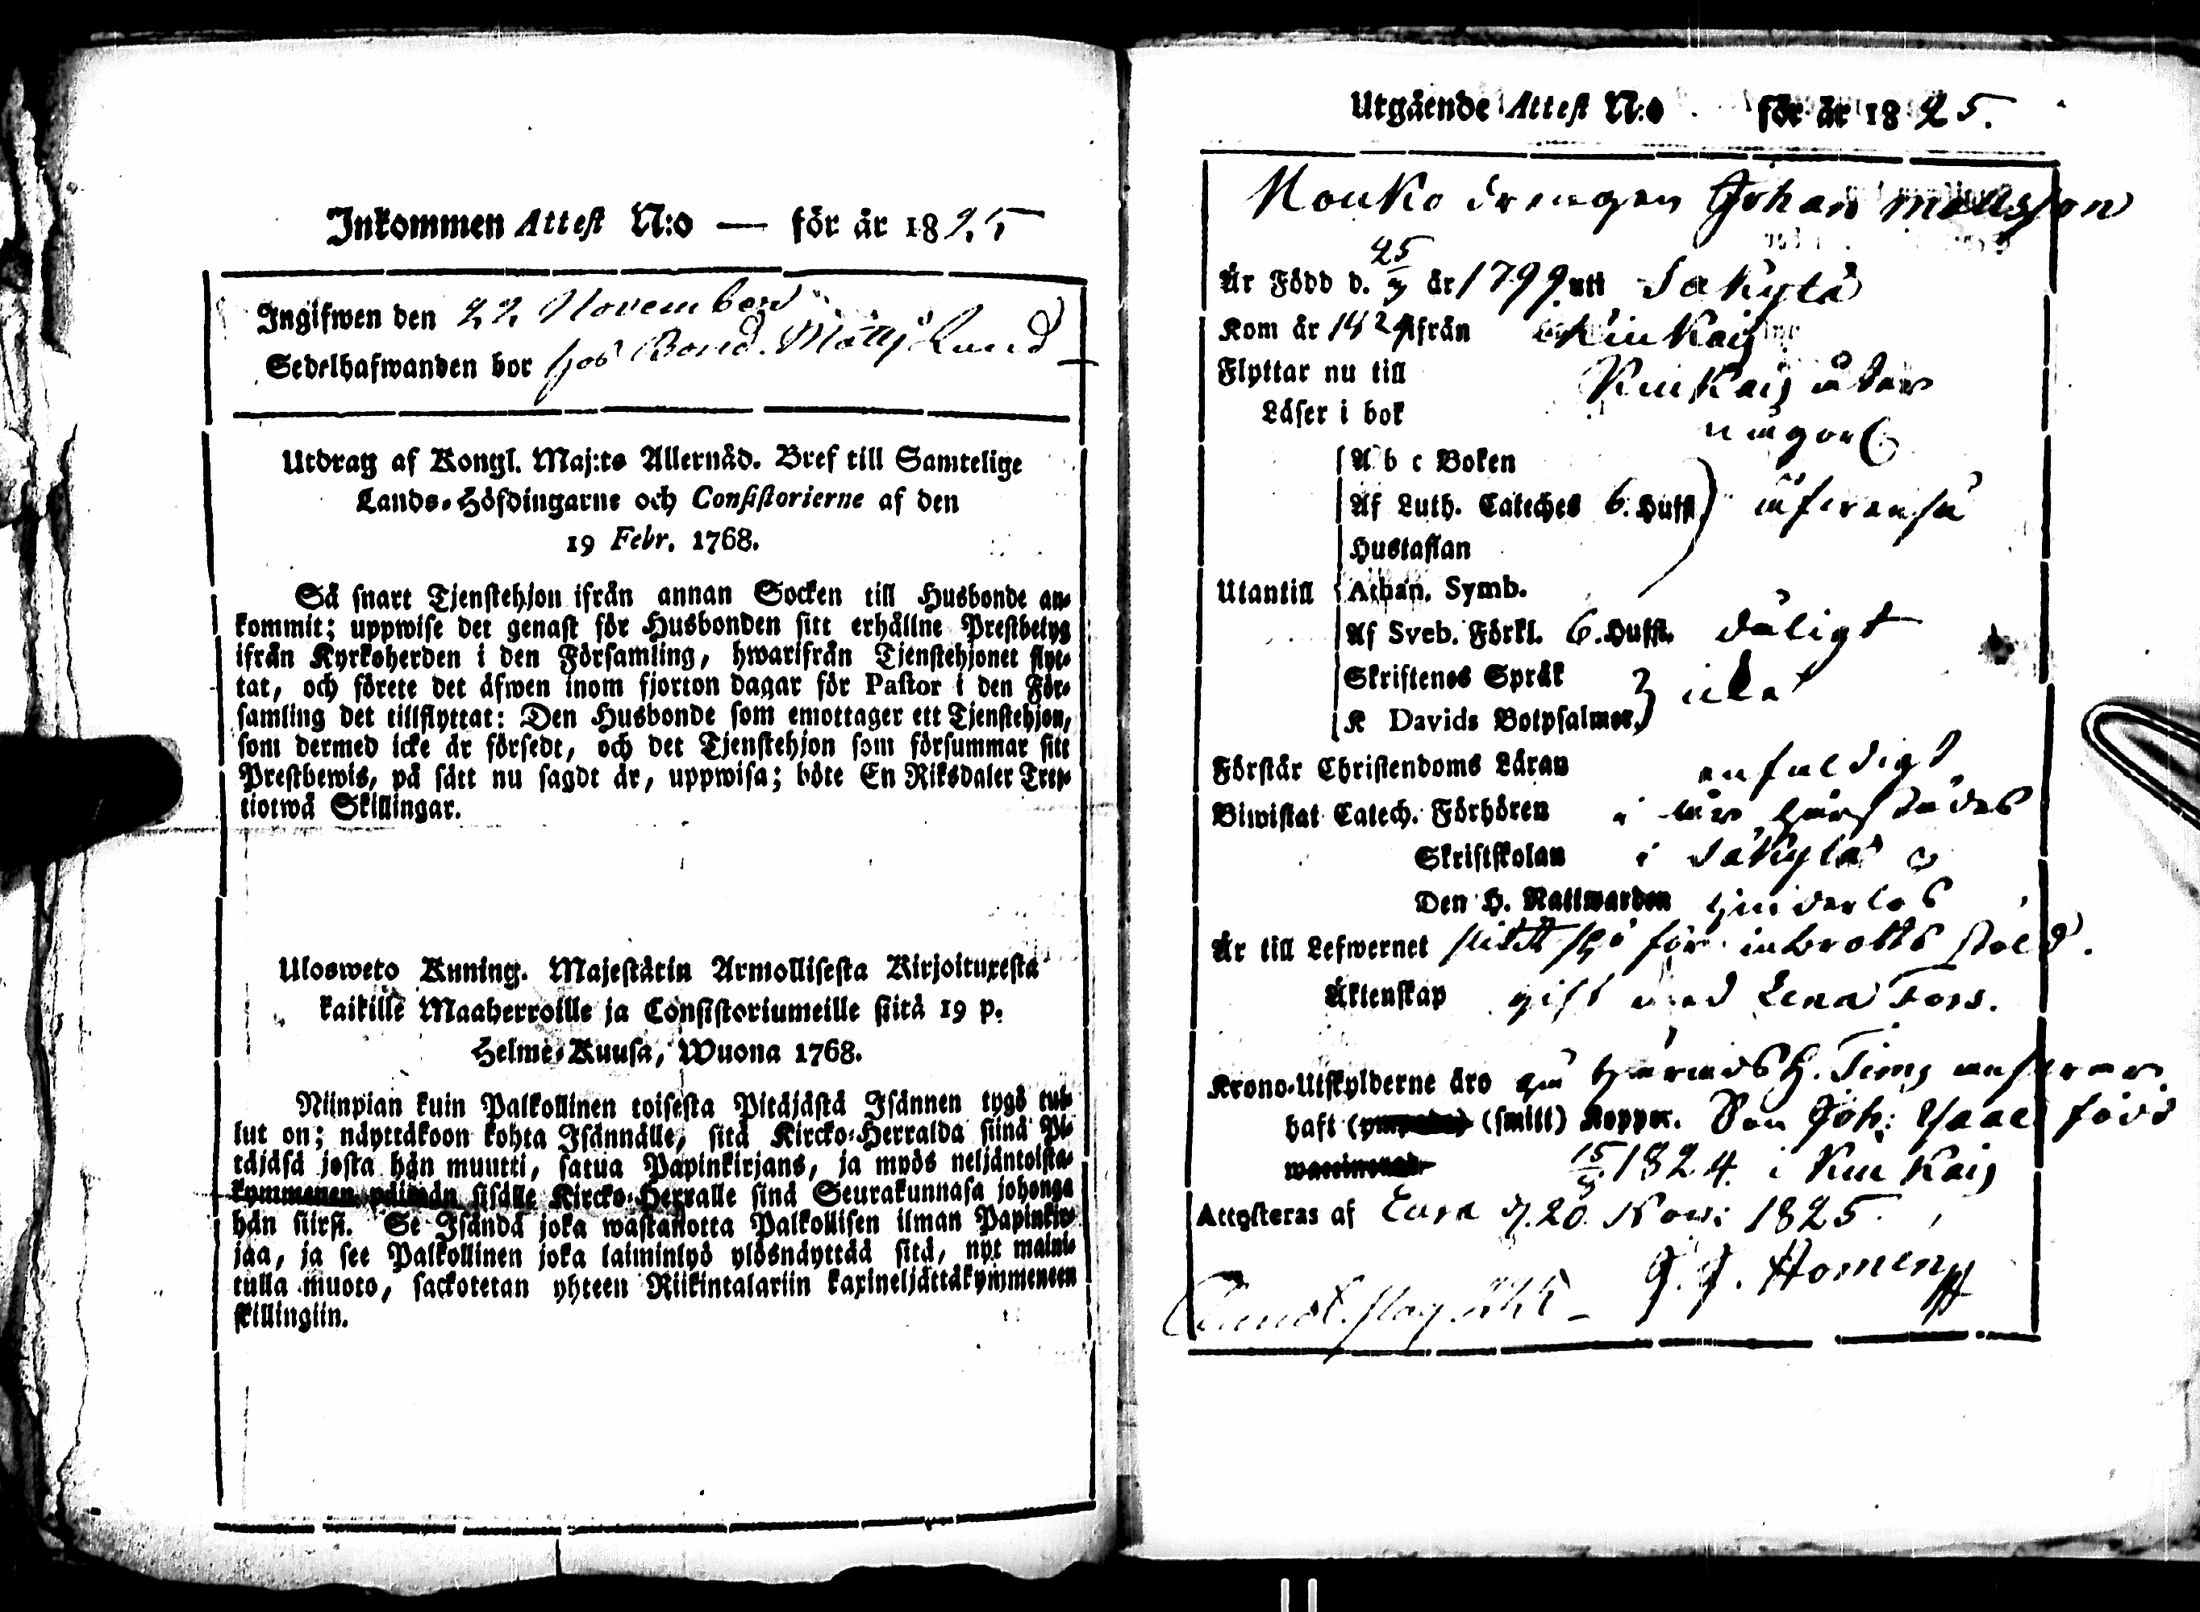 Inkommen Attest N:o — för år 1825
Ingifwen den 22 November
Sedelhafwanden bor hos Bond. Matts Lund
Utdrag af Kongl. Maj:ts Allernåd. Bref till Samtelige
Lands-Höfdingarne och Consistorierne af den
19 Febr. 1768.
Så snart Tjenstehjon ifrån annan Socken till Husbonde an-
kommit; uppwise det genast för Husbonden sitt erhållne Prestbetyg
ifrån Kyrkoherden i den Församling, hwarifrån Tjenstehjonet flyt-
tat, och förete det äfwen inom fjorton dagar för Pastor i den För-
samling det tillflyttat: Den Husbonde som emottager ett Tjenstehjon,
som dermed icke är försedt, och det Tjenstehjon som försummar sitt
Prestbewis, på sätt nu sagdt är, uppwisa; böte En Riksdaler Tret-
tiotwå Skillingar.
Ulosweto Kuning. Majestätin Armollisesta Kirjoituxesta
kaikille Maaherroille ja Consistoriumeille siitä 19 p.
Helme-Kuusa, Wuona 1768.
Niinpian kuin Palkollinen toisesta Pitäjästä Isännen tygö tul-
lut on; näyttäkoon kohta Isännälle, sitä Kircko-Herralda siinä Pi-
täjäsä josta hän muutti, saatua Papinkirjans, ja myös neljäntoista-
kymmenen päiwän sisälle Kircko-Herralle sinä Seurakunnasa johonga
hän siirsi. Se Isändä joka wastanotta Palkollisen ilman Papinkir-
jaa, ja see Palkollinen joka laiminlyö ylösnäyttää sitä, nyt maini-
tulla muoto, sackotetan yhteen Riikintalariin kaxineljättäkymmeneen
skillingiin.
Utgående Attest N:o för år 1825.
Kouko drengen Johan Mattsson
Är Född d. 25/7 år 1799 uti Säkylä
Kom år 1824 ifrån Kiukais
Flyttar nu till Kiukais åter
Läser i bok någorl.
A b c Boken
Af Luth. Cateches 6. Hufst.
Hustaflan
Utantill Athan. Symb.
Af Sveb. Förkl. 6. Hufst. dåligt
Skriftenes Språk
K Davids Botpsalmer icke
Förstår Christendoms Läran enfaldigt
Biwistat Catech. Förhören i år härstädes
Skriftskolan i Säkylä
Den H. Nattwarden hinderlös
Är till Lefwernet för inbrotts stöld.
Äktenskap gift med Lena Fors.
Krono-Utskylderne äro
haft (smitt) Koppor. Son Joh: Isaac född
15 1824 i Kiukais
Attesteras af Eura d. 20 Nov: 1825.